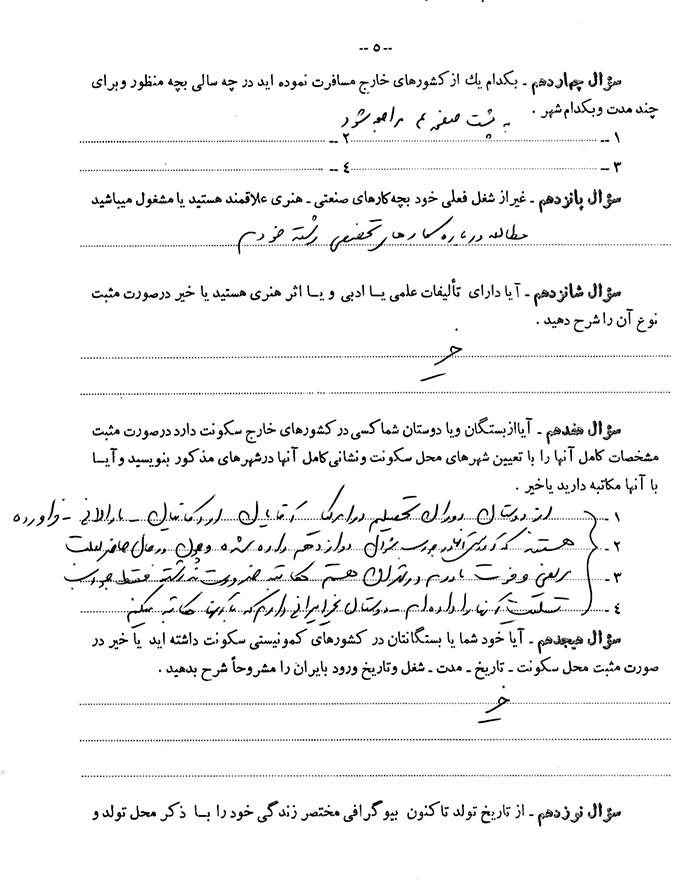 -- ٥ --
سؤال چهاردهم ـ بکدام یك از کشورهای خارج مسافرت نموده اید در چه سالی بچه منظور وبرای
چند مدت وبکدام شهر .
به پشت صفحه ۴ مراجعه شود
۱ -- ۲ --
۳ -- ٤ --
سؤال پانزدهم ـ غیر از شغل فعلی خود بچه کارهای صنعتی ـ هنری علاقمند هستید یا مشغول میباشید
مطالعه درباره کارهای تخصصی رشته خودم
سؤال شانزدهم ـ آیا دارای تألیفات علمی یـا ادبی و یـا اثر هنری هستید یا خیر درصورت مثبت
نوع آن را شرح دهید .
خیر
سؤال هفدهم ـ آیا از بستگان ویا دوستان شما کسی در کشورهای خارج سکونت دارد درصورت مثبت
مشخصات کامل آنها را با تعیین شهرهای محل سکونت ونشانی کامل آنها درشهرهای مذکور بنویسید و آیـا
با آنها مکاتبه دارید یاخیر .
۱ - از دوستان دوران تحصیلم در امریکا آقایان
۲ - هستند که آدرس در جواب سؤال دوازدهم داده شده و چون در حال حاضر
۳ - در تهران هستم مکاتبه ضرورت نداشته فقط جواب
٤ - آنها را داده ام ـ دوستان غیر ایرانی دارم که با آنها مکاتبه
سؤال هیجدهم ـ آیا خود شما یا بستگانتان در کشورهای کمونیستی سکونت داشته اید یا خیر در
صورت مثبت محل سکونت ـ تاریخ ـ مدت ـ شغل وتاریخ ورود بایران را مشروحاً شرح بدهید .
خیر
سؤال نوزدهم ـ از تاریخ تولد تاکنون بیوگرافی مختصر زندگی خود را بـا ذکر محل تولد و